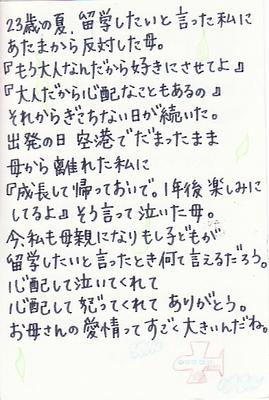 23歳の夏、留学したいと言った私に
あたまから反対した母。
『もう大人なんだから好きにさせてよ』
『大人だから心配なこともあるの』
それからぎこちない日が続いた。
出発の日 空港でだまったまま
母から離れた私に
『成長して帰っておいで。1年後楽しみに
してるよ』そう言って泣いた母。
今、私も母親になりもし子どもが
留学したいと言ったとき何て言えるだろう。
心配して泣いてくれて
心配して怒ってくれて ありがとう。
お母さんの愛情ってすごく大きいんだね。